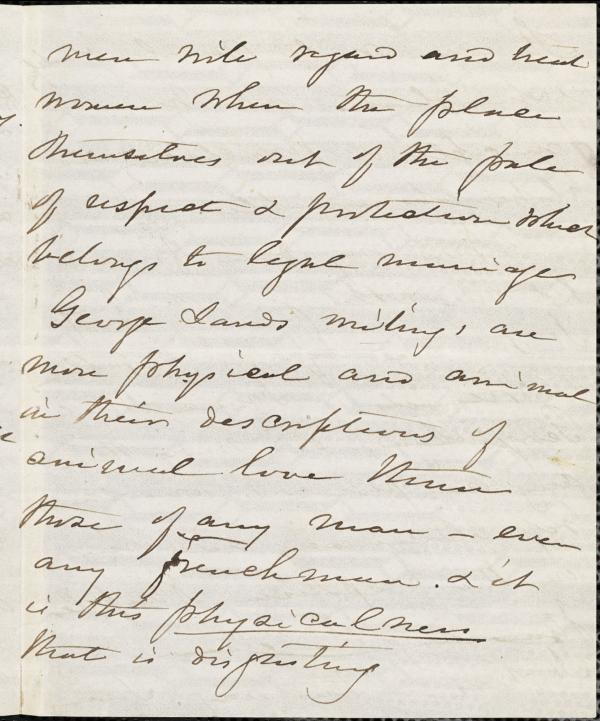 men will regard and treat
women when the place
themselves out of the pale
of respect & protection which
belongs to legal marriage
George Sands writings are
more physical and animal
in their descriptions of
animal love than
those of any man – even
any frenchman. & it
is this physicalness
that is disgusting